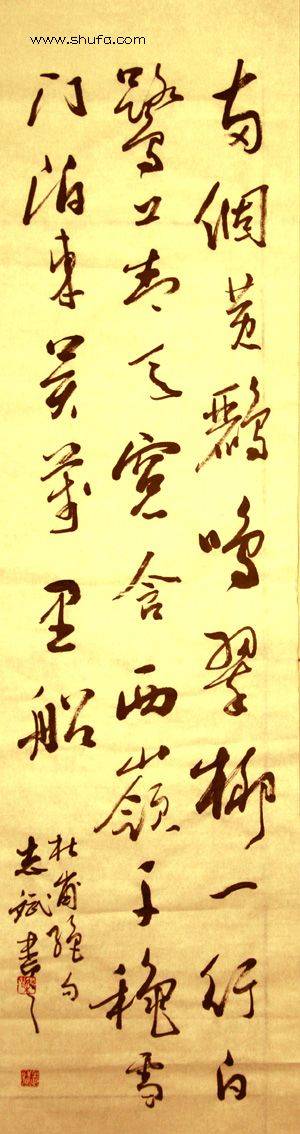 www.shufa.com
兩個黄鸝鳴翠柳一行白
鷺上青天窗含西嶺千穐雪
門泊東吴萬里船
杜甫絶句
志斌書之